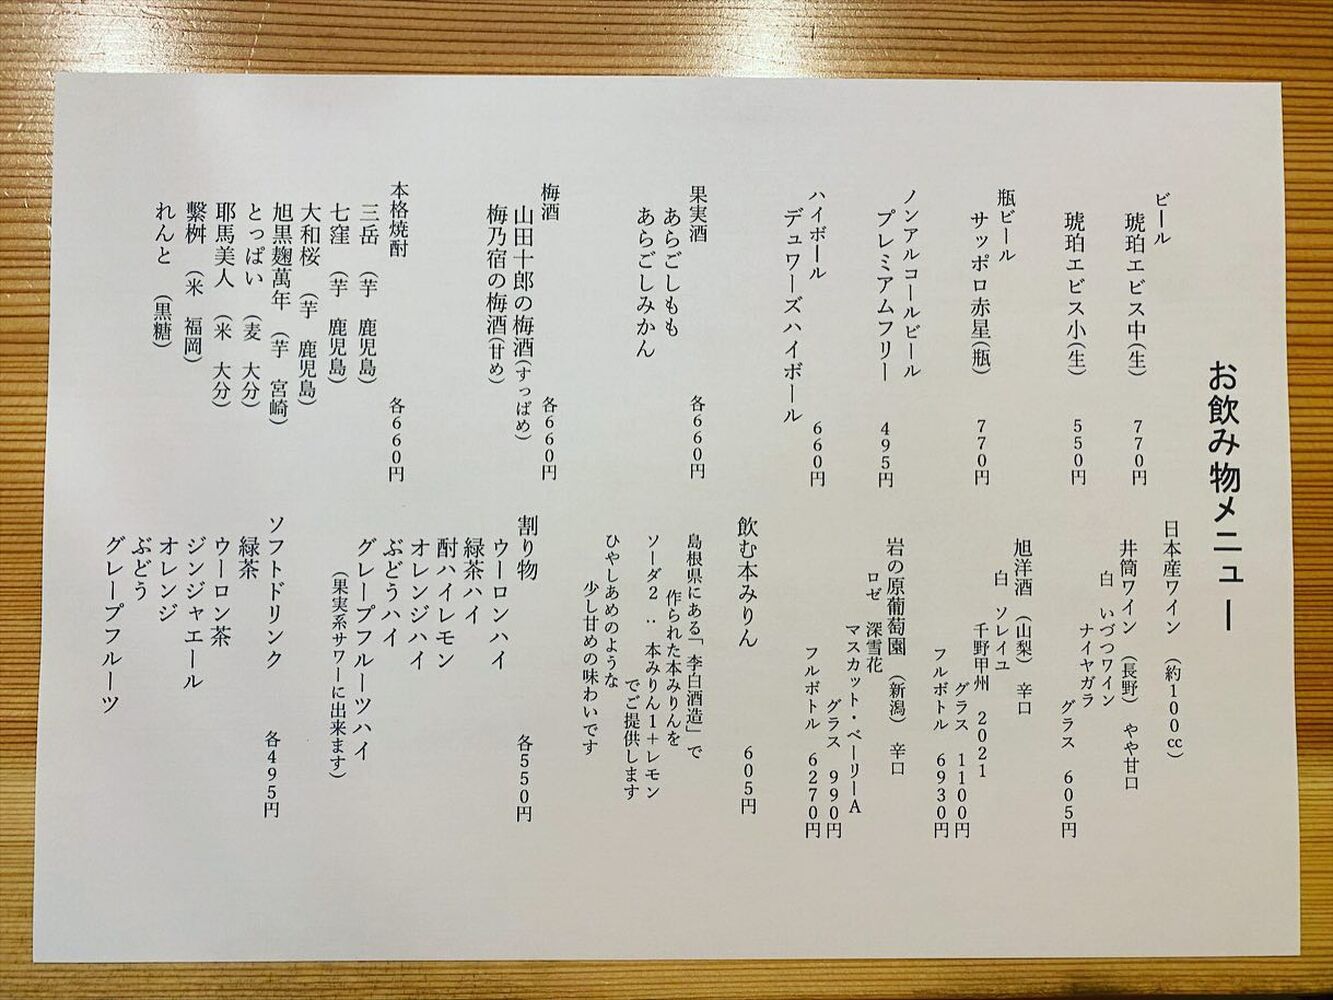 お飲み物メニュー
ビール
琥珀エビス中(生) 770円
琥珀エビス小(生) 550円
瓶ビール
サッポロ赤星(瓶) 770円
ノンアルコールビール
プレミアムフリー 495円
ハイボール 660円
デュワーズハイボール
果実酒 各660円
あらごしもも
あらごしみかん
梅酒 各660円
山田十郎の梅酒(すっぱめ)
梅乃宿の梅酒(甘め)
本格焼酎 各660円
三岳 (芋 鹿児島)
七窪 (芋 鹿児島)
大和桜 (芋 鹿児島)
旭黒麹萬年 (芋 宮崎)
とっぱい (麦 大分)
耶馬美人 (米 大分)
繋桝 (米 福岡)
れんと (黒糖)
日本産ワイン (約100cc)
井筒ワイン (長野) やや甘口
白 いづつワイン
ナイヤガラ
グラス 605円
旭洋酒 (山梨) 辛口
白 ソレイユ
千野甲州 2021
グラス 1100円
フルボトル 6930円
岩の原葡萄園 (新潟) 辛口
ロゼ 深雪花
マスカット・ベーリーA
グラス 990円
フルボトル 6270円
飲む本みりん 605円
島根県にある「李白酒造」で
作られた本みりんを
ソーダ2 : 本みりん1+レモン
でご提供します
ひやしあめのような
少し甘めの味わいです
割り物 各550円
ウーロンハイ
緑茶ハイ
酎ハイレモン
オレンジハイ
ぶどうハイ
グレープフルーツハイ
(果実系サワーに出来ます)
ソフトドリンク 各495円
緑茶
ウーロン茶
ジンジャエール
オレンジ
ぶどう
グレープフルーツ